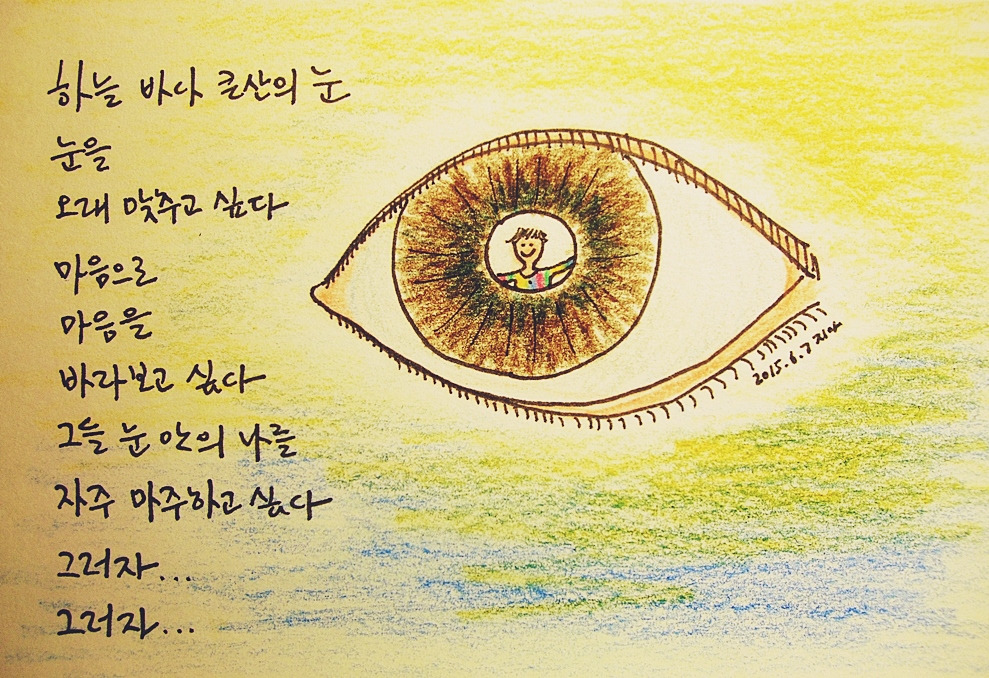 하늘 바다 큰산의 눈
눈을
오래 맞추고 싶다
마음으로
마음을
바라보고 싶다
그들 눈 안의 나를
자주 마주하고 싶다
그러자...
그러자...
2015.6.7